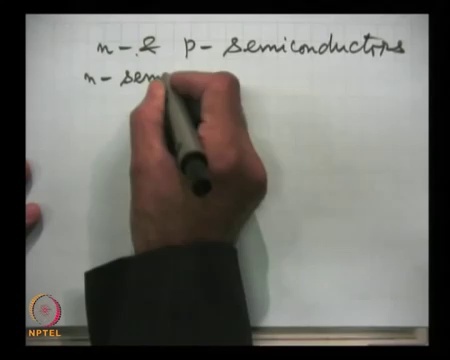 n- & p- semiconductors
n- sem
NPTEL